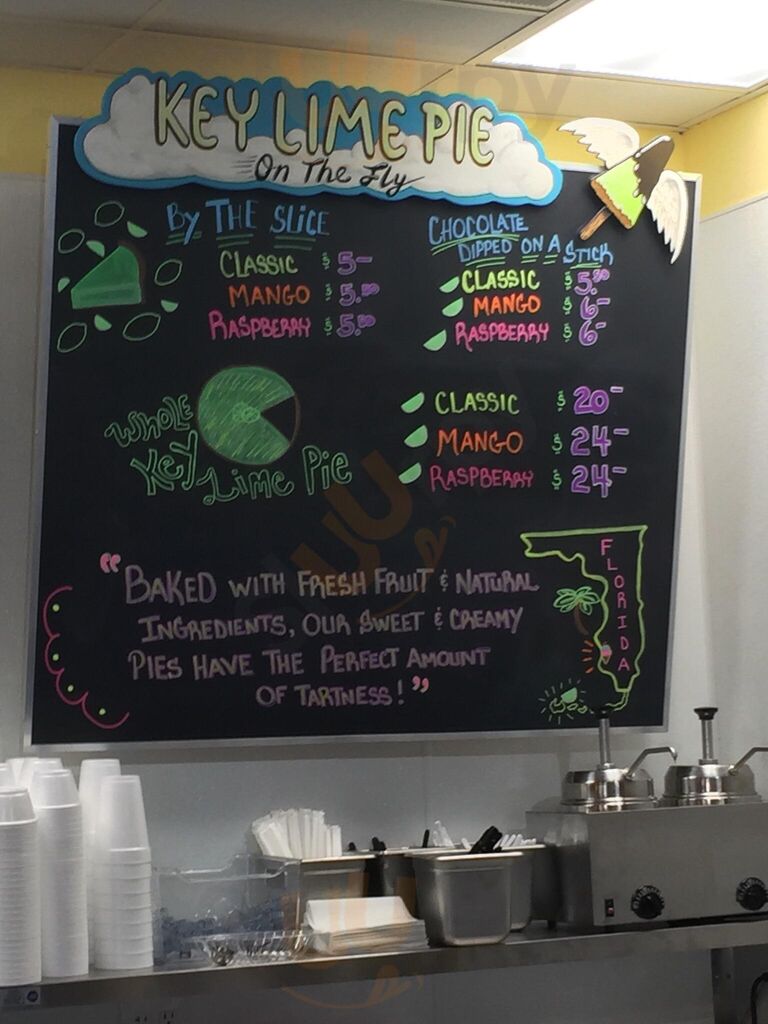 KEY LIME PIE
On The Fly
BY THE SLICE
CLASSIC $5-
MANGO $5.50
RASPBERRY $5.50
CHOCOLATE
DIPPED ON A STICK
CLASSIC $5.50
MANGO $6-
RASPBERRY $6-
WHOLE
KEY LIME PIE
CLASSIC $20-
MANGO $24-
RASPBERRY $24-
"BAKED WITH FRESH FRUIT & NATURAL
INGREDIENTS, OUR SWEET & CREAMY
PIES HAVE THE PERFECT AMOUNT
OF TARTNESS!"
FLORIDA